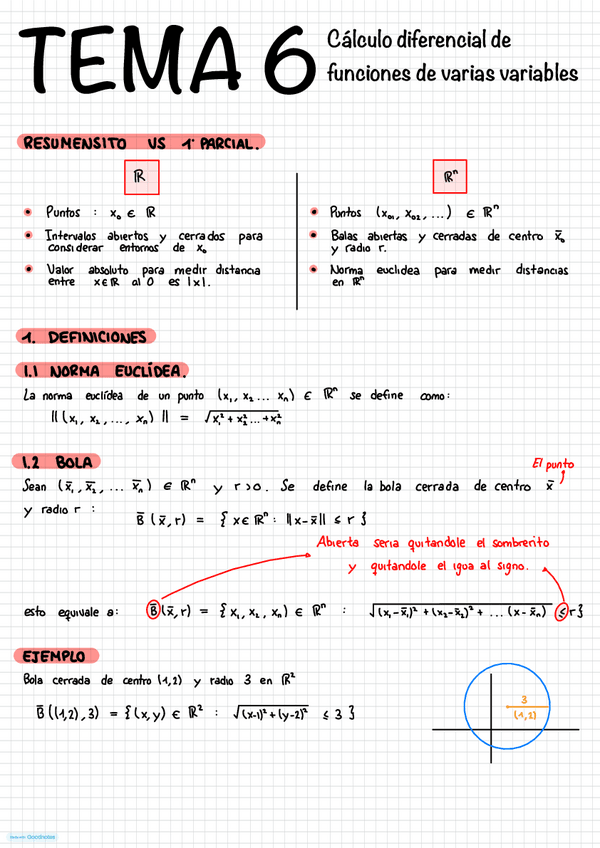 TEMA 6
Cálculo diferencial de
funciones de varias variables
RESUMENSITO VS 1º PARCIAL.
ℝ
• Puntos : x₀ ∈ ℝ
• Intervalos abiertos y cerrados para
considerar entornos de x₀
• Valor absoluto para medir distancia
entre x∈ℝ al 0 es |x|.
ℝⁿ
• Puntos (x₀₁, x₀₂, ...) ∈ ℝⁿ
• Balas abiertas y cerradas de centro x̄₀
y radio r.
• Norma euclidea para medir distancias
en ℝⁿ
1. DEFINICIONES
1.1 NORMA EUCLÍDEA.
La norma euclídea de un punto (x₁, x₂ ... xₙ) ∈ ℝⁿ se define como:
||(x₁, x₂, ..., xₙ)|| = √(x₁² + x₂² ... + xₙ²)
1.2 BOLA
El punto
Sean (x̄₁, x̄₂, ... x̄ₙ) ∈ ℝⁿ y r>0. Se define la bola cerrada de centro x̄
y radio r :
B̄ (x̄, r) = { x∈ℝⁿ : ||x-x̄|| ≤ r }
Abierta seria quitandole el sombrerito
y quitandole el igua al signo.
esto equivale a: B̄(x̄, r) = { x₁, x₂, xₙ) ∈ ℝⁿ : √(x₁-x̄₁)² + (x₂-x̄₂)² + ... (x-x̄ₙ) ≤ r}
EJEMPLO
Bola cerrada de centro (1,2) y radio 3 en ℝ²
B̄((1,2), 3) = {(x,y) ∈ ℝ² : √(x-1)² + (y-2)² ≤ 3 }
3
(1,2)
Goodnotes